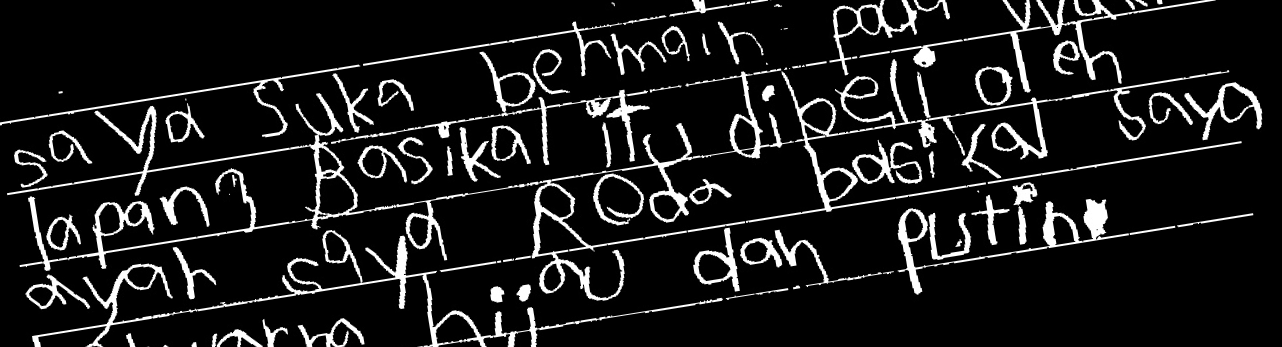 saya Suka bermain pada
lapang Basikal itu dibeli oleh
ayah saya Roda basikal saya
berwarna hijau dan putih